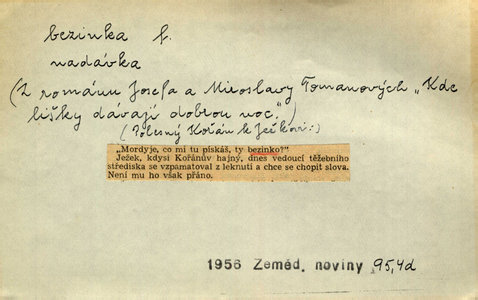 bezinka f.
nadávka
(Z románu Josefa a Miroslavy Tomanových „Kde
lišky dávají dobrou noc.")
(Polesný Kořán k Ježkovi:)
„Mordyje, co mi tu pískáš, ty bezinko?"
Ježek, kdysi Kořánův hajný, dnes vedoucí těžebního
střediska se vzpamatoval z leknutí a chce se chopit slova.
Není mu ho však přáno.
1956 Zeměd. noviny 95,4d